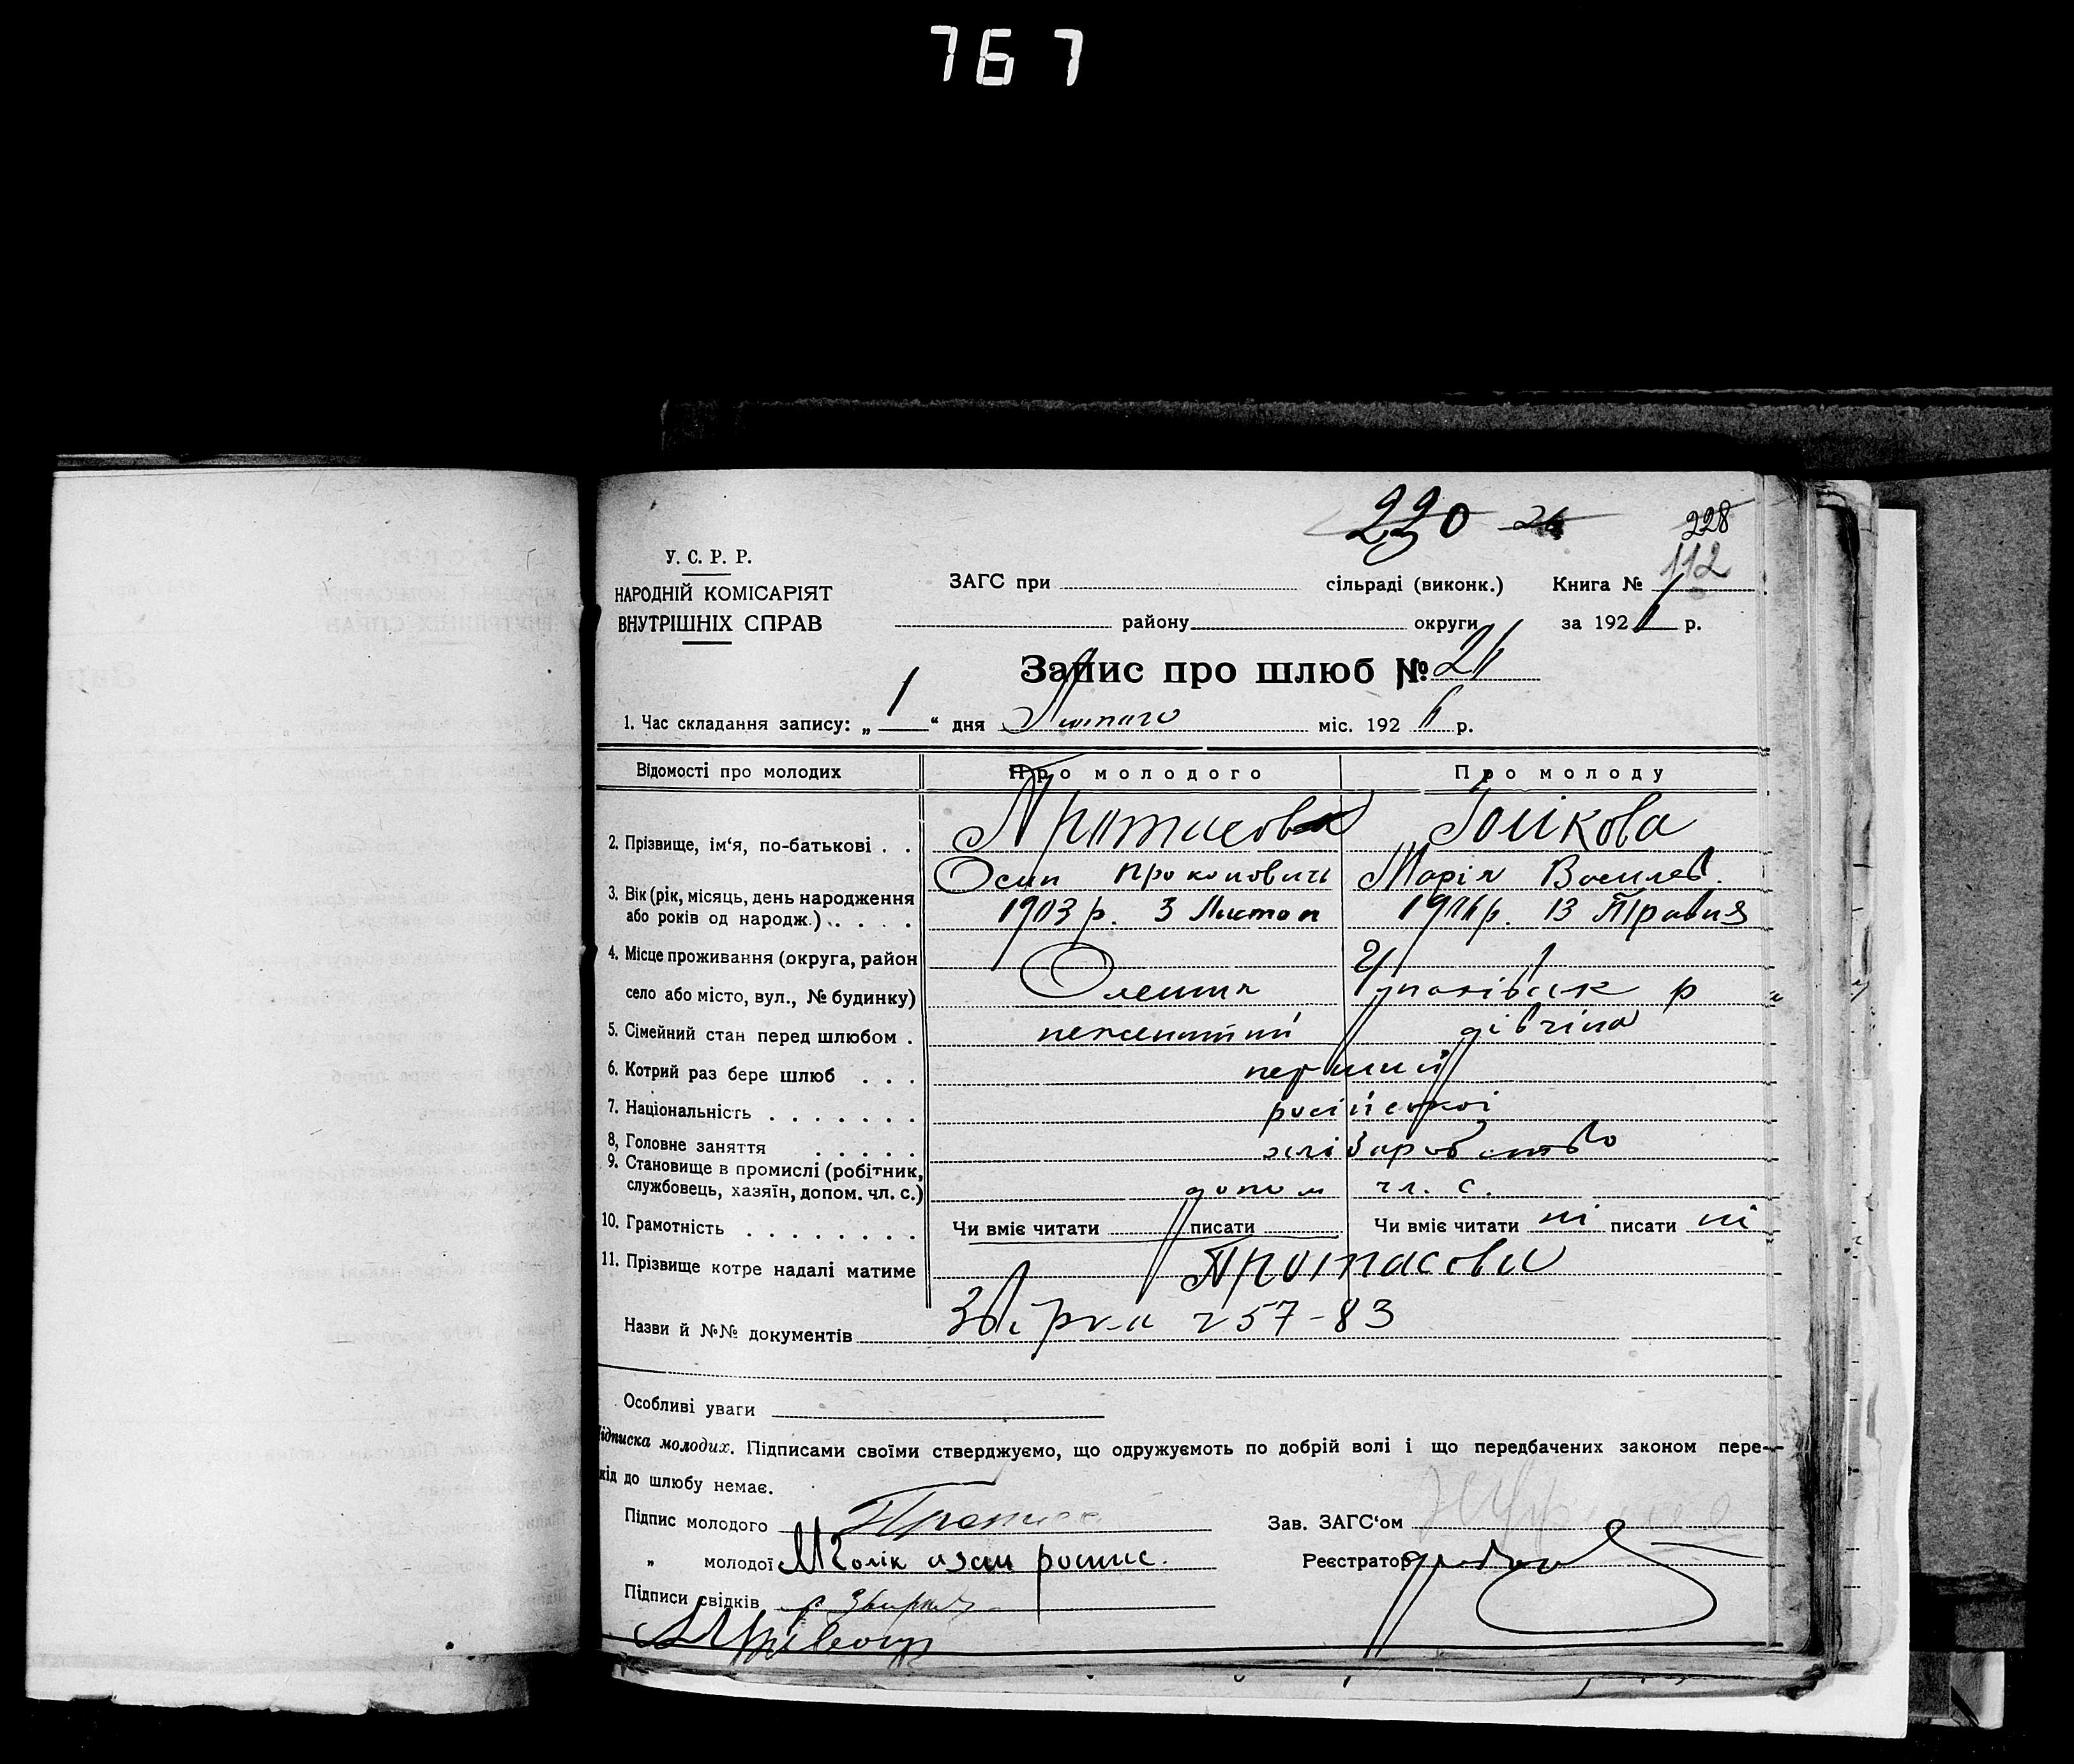 767
220 26 228
112
У. С. Р. Р.
НАРОДНІЙ КОМІСАРІЯТ
ВНУТРІШНІХ СПРАВ
ЗАГС при сільраді (виконк.) Книга № 1
району округи за 1926 р.
Запис про шлюб № 26
1. Час складання запису: „ 1 “ дня Лютого міс. 1926 р.
Відомості про молодих Про молодого Про молоду
2. Прізвище, ім‘я, по-батькові . . Протасов
Осип Прокопович Марія Василев.
3. Вік (рік, місяць, день народження
або років од народж.) . . . . . 1903 р. 3 Листоп 1906 р. 13 Травня
4. Місце проживання (округа, район
село або місто, вул., № будинку) р
5. Сімейний стан перед шлюбом . нежонатий дівчина
6. Котрий раз бере шлюб . . . перший
7. Національність . . . . . . . російської
8, Головне заняття . . . . . хліборобство
9. Становище в промислі (робітник,
службовець, хазяїн, допом. чл. с.) допом чл. с.
10. Грамотність . . . . . . . . Чи вміє читати писати Чи вміє читати ні писати ні
11. Прізвище котре надалі матиме Протасови
Назви й №№ документів 257-83
Особливі уваги
ідписка молодих. Підписами своїми стверджуємо, що одружуємоть по добрій волі і що передбачених законом пере-
кід до шлюбу немає.
Підпис молодого Протас Зав. ЗАГС‘ом
„ молодої Реєстратор
Підписи свідків